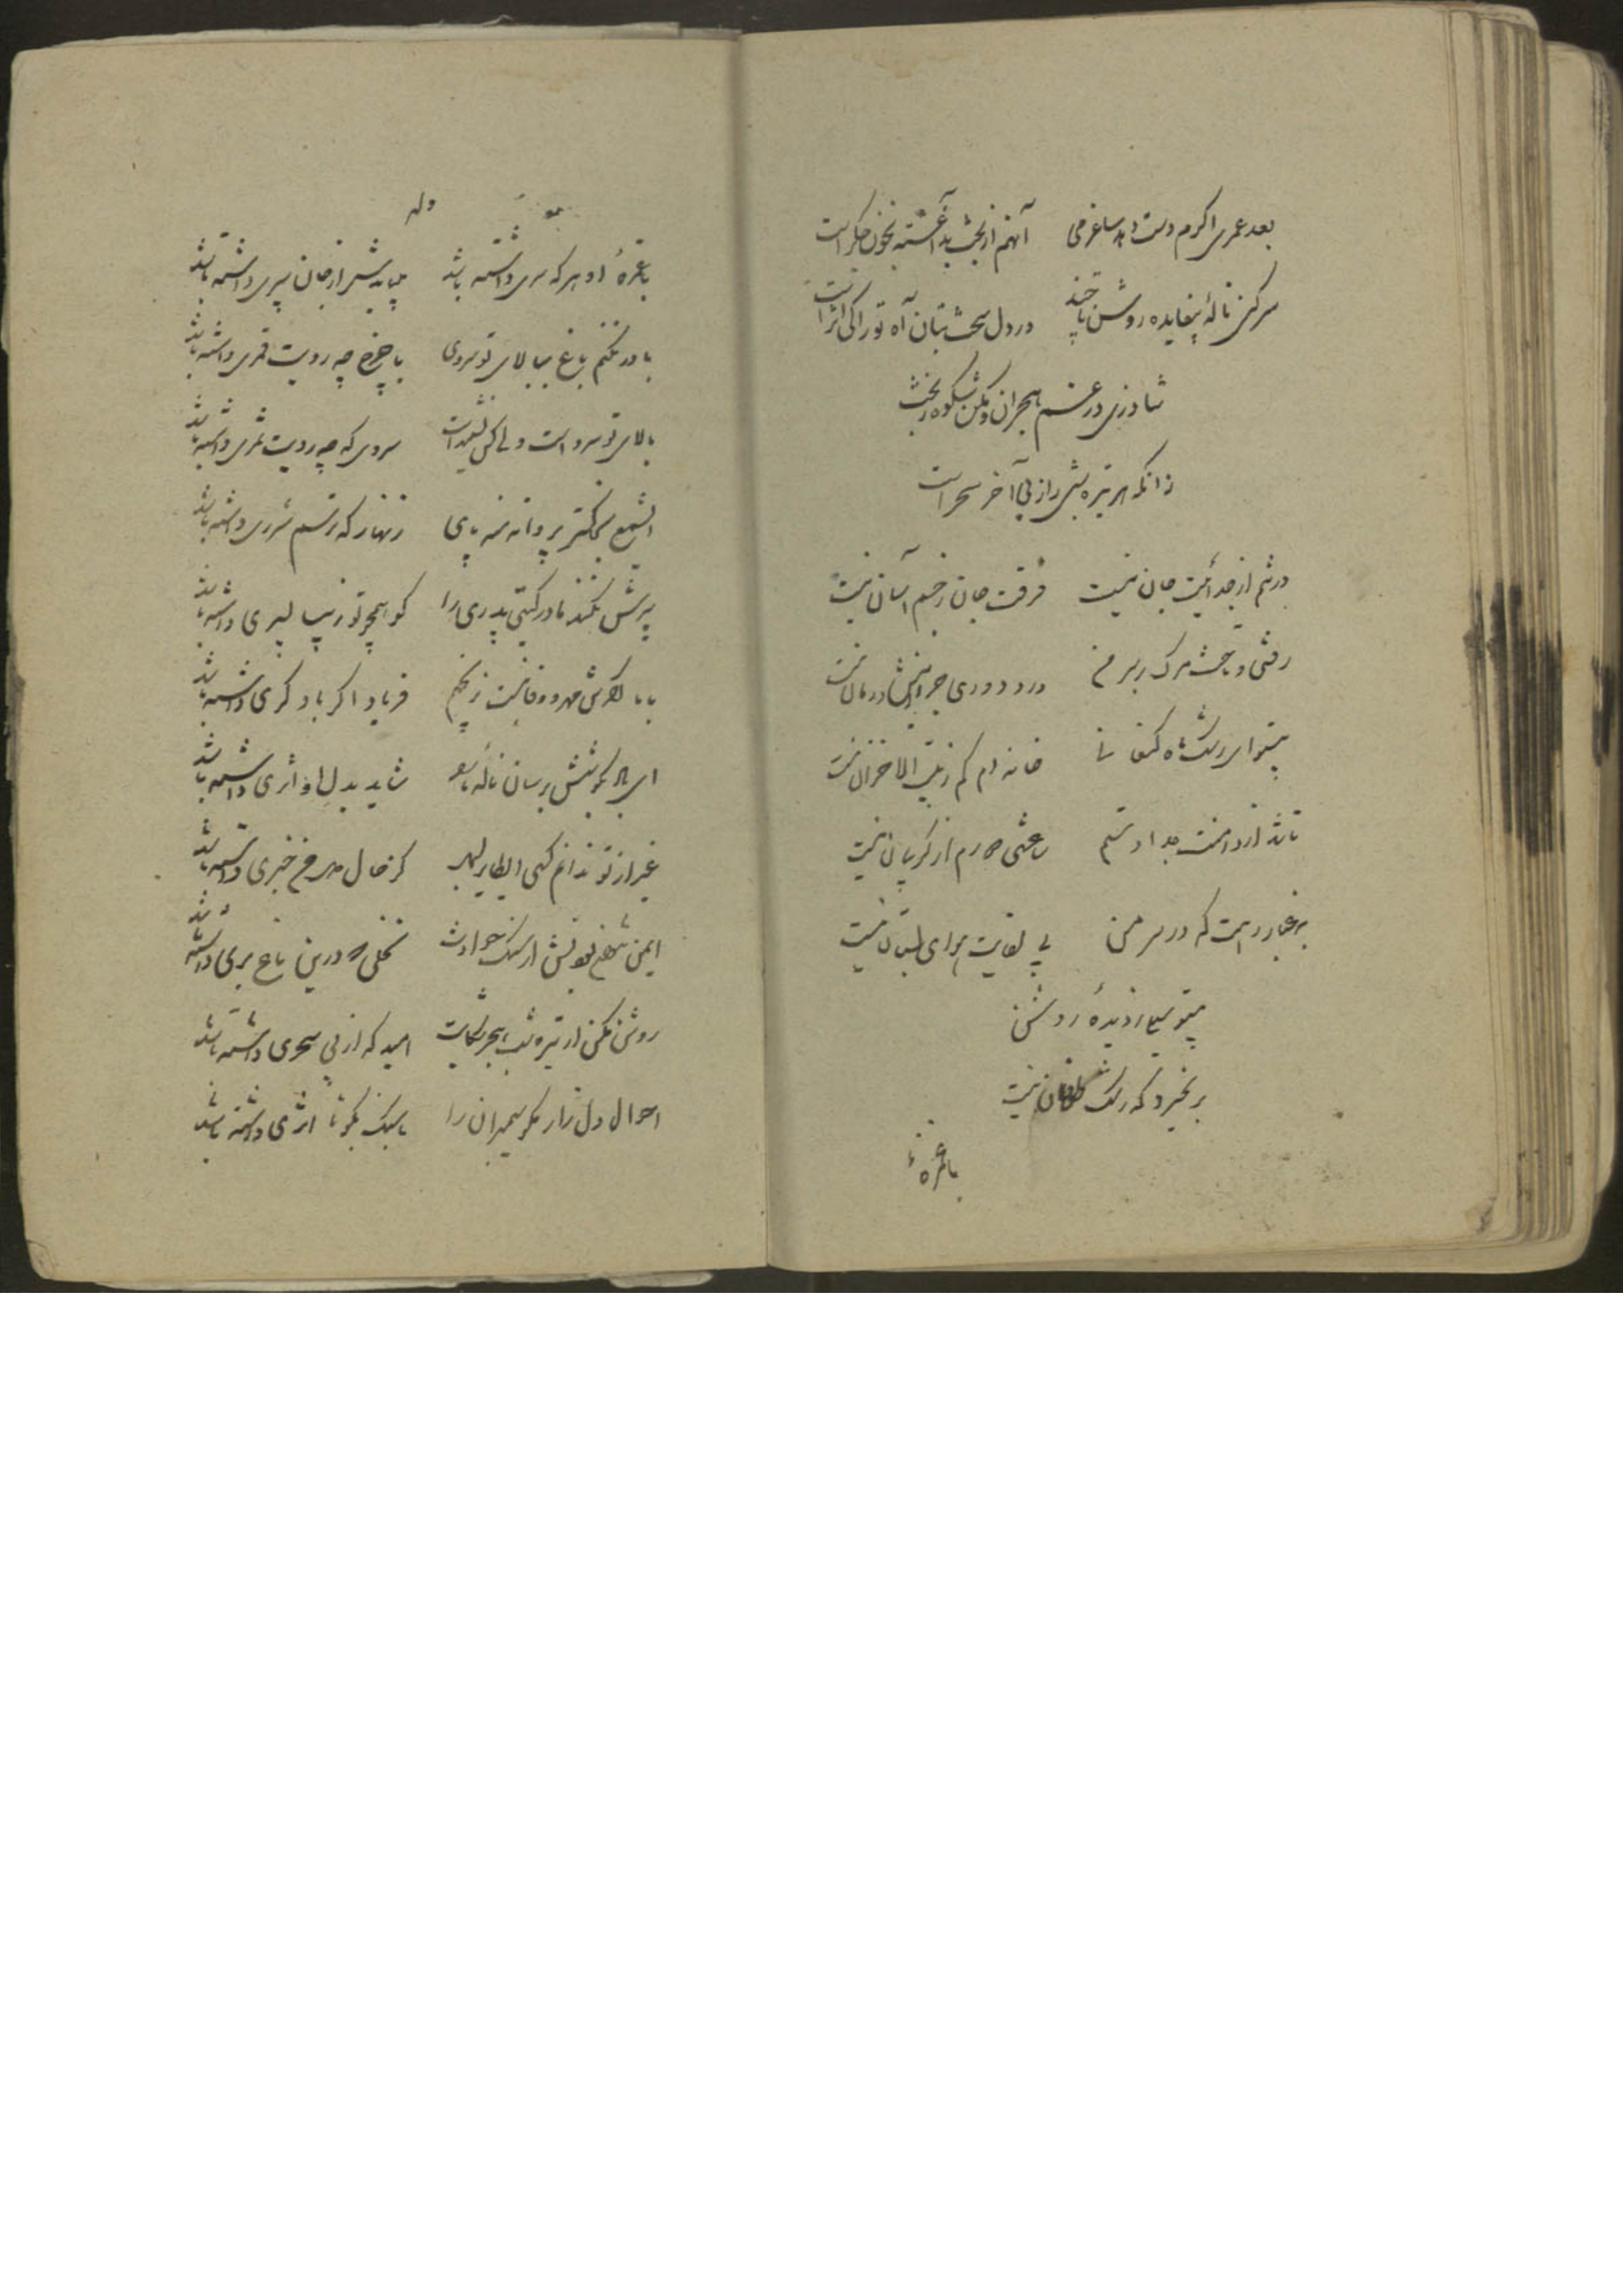 بعد عمری اکرم دست دهد ساغر می آنهم از بخت بد آغشته بخون جکر است
سر کن نالهٔ بیفایده روشن تا چند در دل سخت بتان آه تو را کی اثر است
شاد زی در غم هجران و مکن شکوه ز بخت
زانکه هر تیره شبی را ز پی آخر سحر است
در تنم از جدائیت جان نیست فرقت جان ز جسم آسان نیست
رفتی و تاخت مرک بر سر من درد دوری درمان نیست
بیتو ای رشک ماه کنعانی خانه‌ام کم ز بیت الاحزان نیست
تا شد از دامنت جدا دستم ساعتی از کریبان نیست
به غبار رهت که در سر من بی لقایت هوای بستان نیست
بیتو از دیدهٔ روشن
بر نخیزد که رشک طوفان نیست
با غمزهٔ
وله
با غمزهٔ او هر که سری داشته باشد باید سپر از جان سپری داشته باشد
باور نکنم باغ ببالای تو سروی یا چرخ چه رویت قمری داشته باشد
بالای تو سرو است ولی کس نشنیداست سروی که چه رویت ثمری داشته باشد
ای شمع بخاکستر پروانه منه پای زنهار که ترسم شرری داشته باشد
پرسش نکند مادر کیتی پدری را کو همچو تو زیبا پسری داشته باشد
با ما مهر و وفا نیست ز انجم فریاد اکر با دکری داشته باشد
ای بکوشش برسان ناله ما شاید بدل او اثری داشته باشد
غیر از تو ندانم کسی ای طایر کز حال من خبری داشته باشد
ایمن از سنک حوادث نخلی که درین باغ بری داشته باشد
روشن مکن از تیره شب هجر شکایت امید که از پی سحری داشته باشد
احوال دل زار بکو سیمبران را با سنک بکو تا اثری داشته باشد